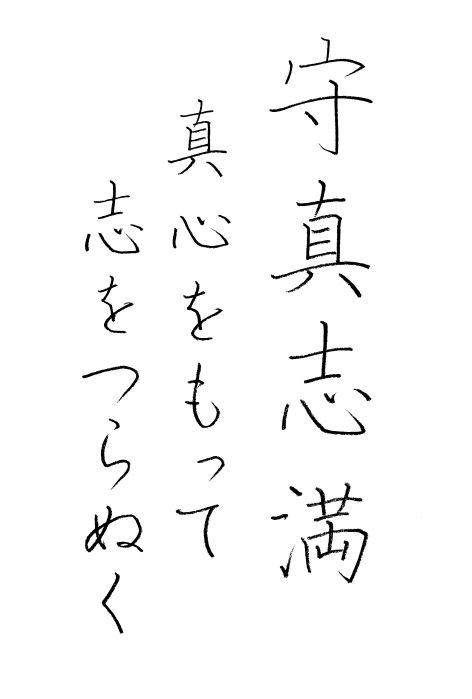 守真志満
真心をもって
志をつらぬく